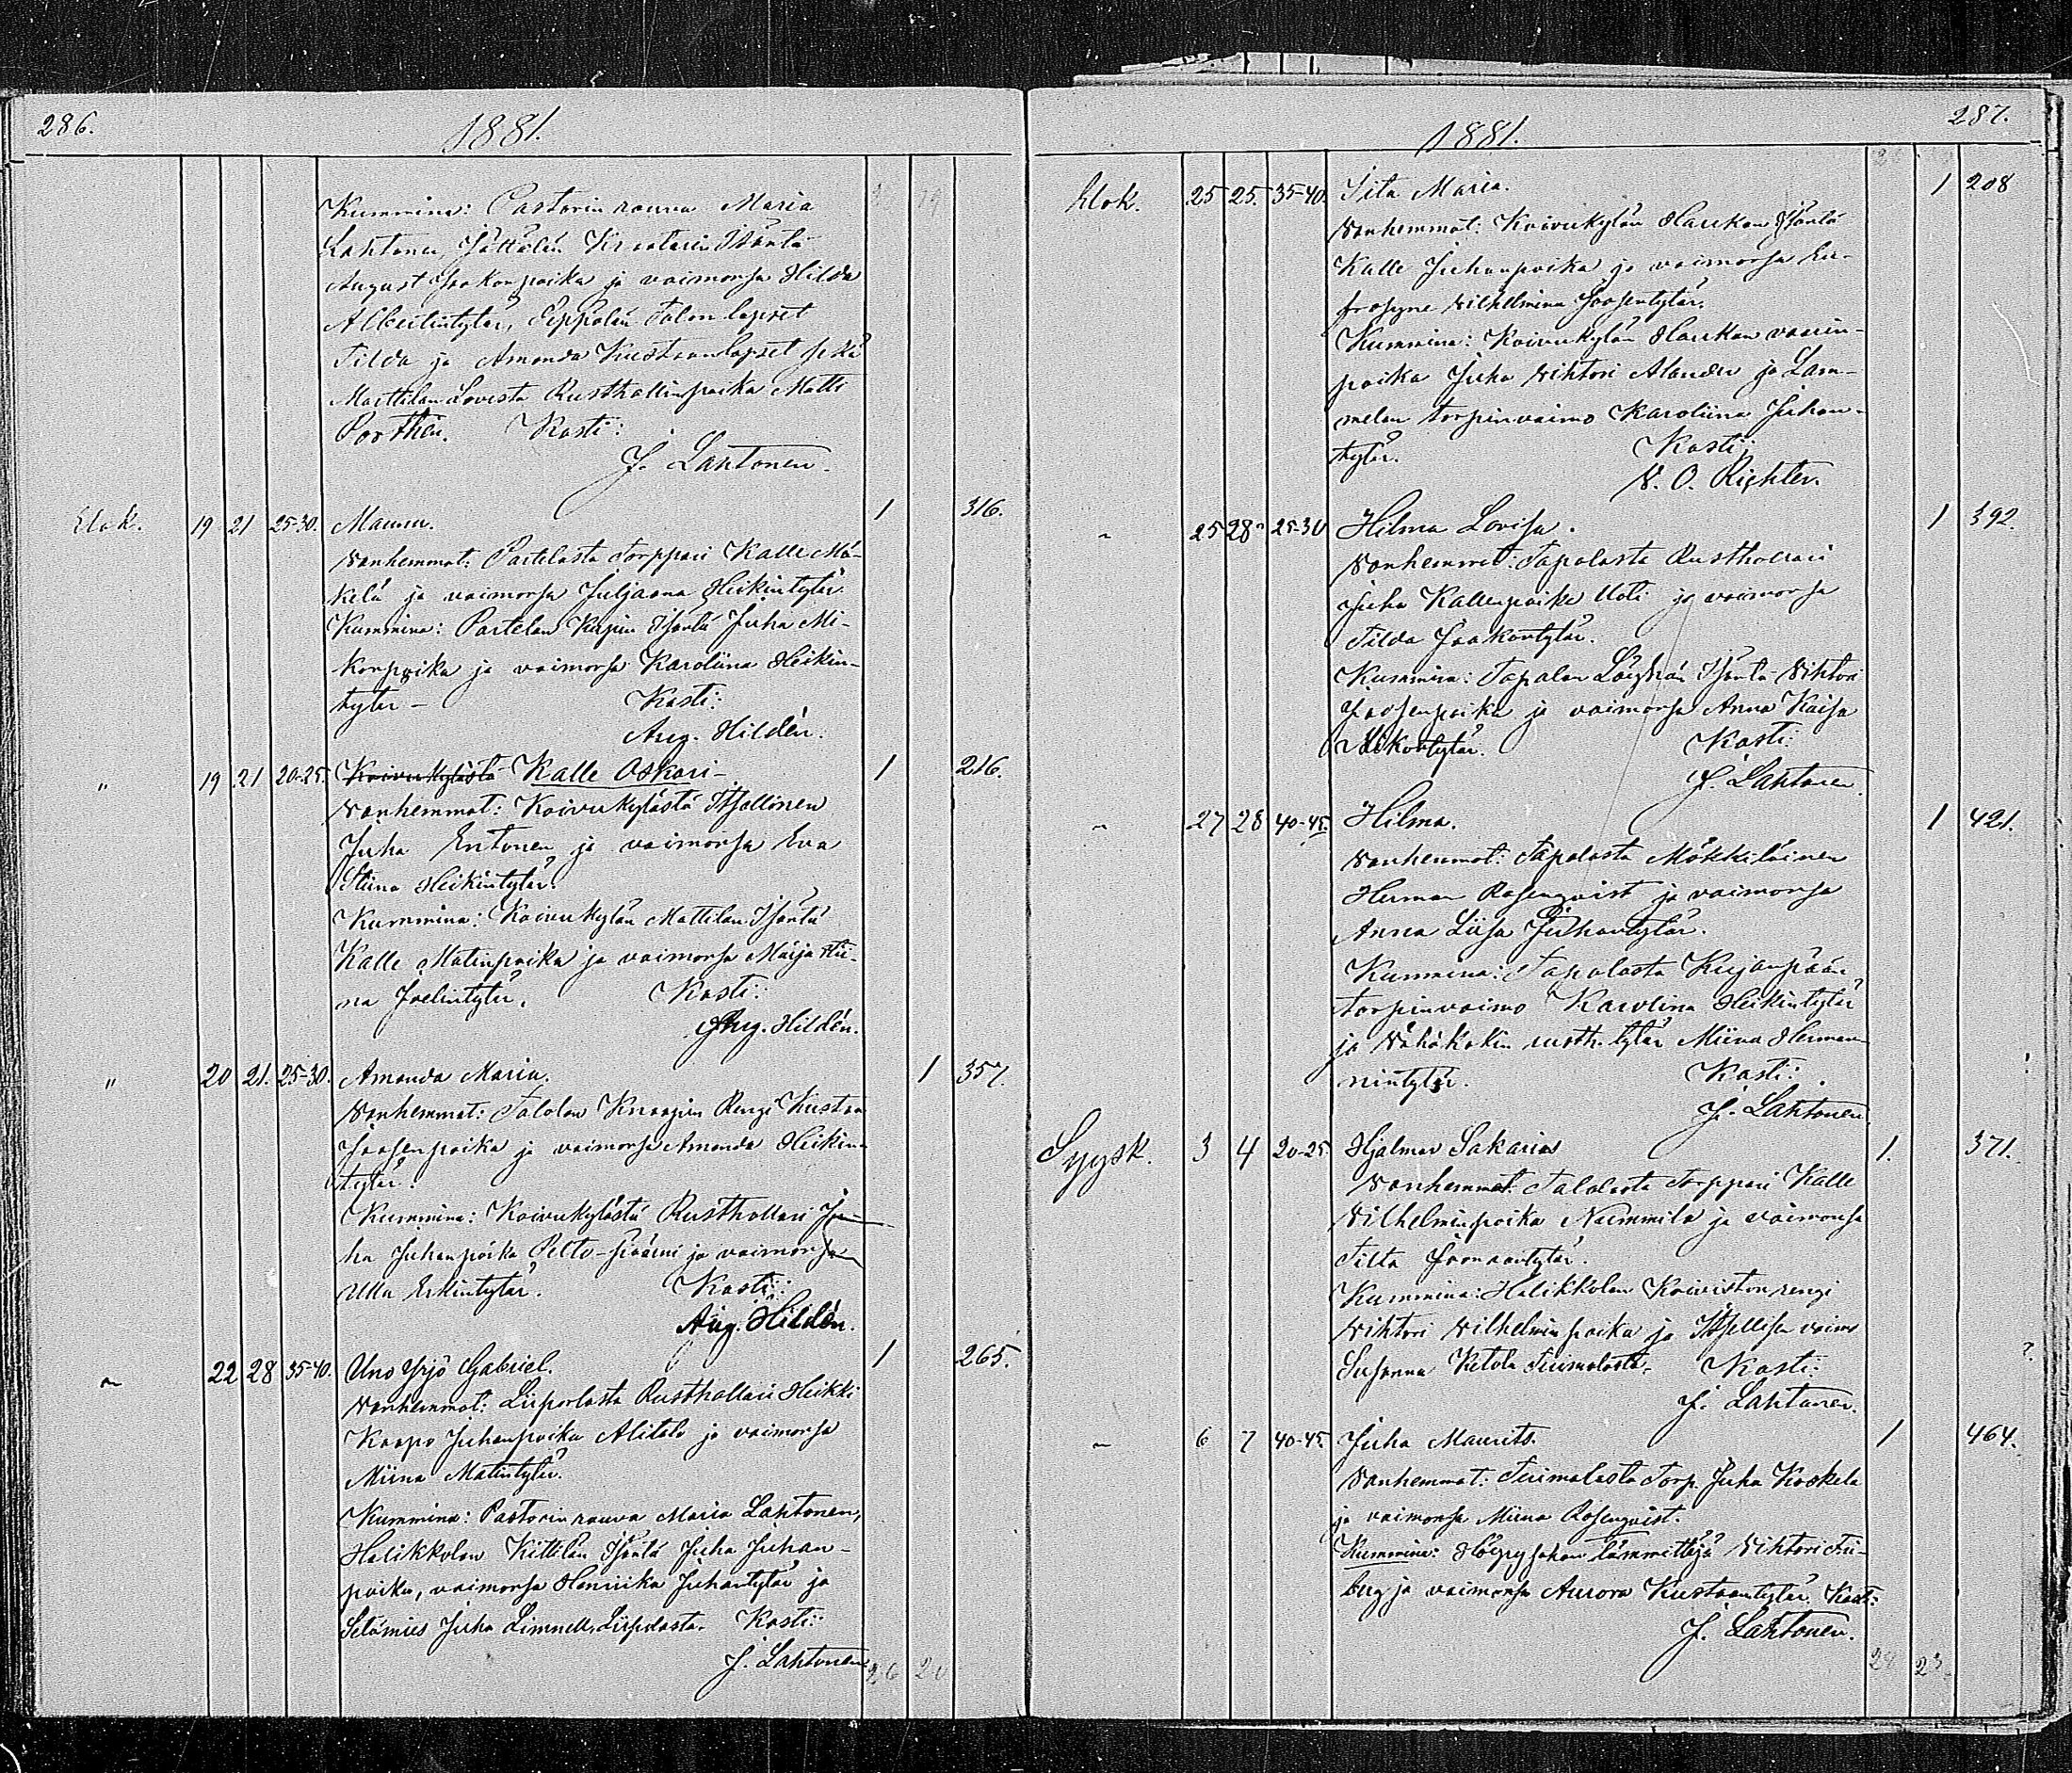 286.
1881.
Kummina: Pastorin rouva Maria
Lahtonen, Jättälän Isäntä
August Jaakonpoika ja vaimonsa Hilda
Seppälän Talon lapset
Tilda ja Amanda Kustaanlapset sekä
Rusthollinpoika Matti
Porthén. Kasti:
J. Lahtonen.
Elok. 19 21 25-30. Maunu. 1 316.
Vanhemmat: Partelasta Torppari Kalle Mä-
kelä ja vaimonsa Juljaana Heikintytär.
Kummina: Partelan Isäntä Juha Mi-
konpoika ja vaimonsa Karoliina Heikin-
tytär – Kasti:
Aug. Hildén.
" 19 21 20-25. Koivukylästä Kalle Oskari – 1 216.
Vanhemmat: Koivukylästä Itsellinen
Juha Entonen ja vaimonsa Eva
Stiina Heikintytär.
Kummina: Koivukylän Mattilan Isäntä
Kalle Matinpoika ja vaimonsa Maija Stii-
na Joelintytär. Kasti:
Aug. Hildén.
" 20 21. 25-30. Amanda Maria. 1 357.
Vanhemmat: Talolan Knaapin Rengi Kustaa
Joosenpoika ja vaimonsa Amanda Heikin-
tytär.
Kummina: Koivukylästä Rusthollari Ju-
ha Juhanpoika Pelto-Sipääni ja vaimonsa
Ulla Erkintytär. Kasti:
Aug. Hildén.
" 22 28 35-40. Uno Yrjö Gabriel. 1 265.
Vanhemmat: Liiporlasta Rusthollari Heikki
Kaapo Juhanpoika Alitalo ja vaimonsa
Miina Matintytär.
Kummina: Pastorin rouva Maria Lahtonen,
Halikkolan Kittilän Isäntä Juha Juhan-
poika, vaimonsa Henriika Juhantytär ja
Setämies Juha Limnell, Kasti:
J. Lahtonen
26 20
287.
1881.
Elok. 25 25. 35-40. Iita Maria. 1 208
Vanhemmat: Koivukylän Haukan Isäntä
Kalle Juhanpoika ja vaimonsa Eu-
frosyne Vilhelmina Joosentytär.
Kummina: Koivukylän Haukan vaarin-
poika Juha Vihtori Alander ja Lam-
melan torpinvaimo Karoliina Juhan-
tytär. Kasti:
V. O. Richter.
" 25 28 25-30 Hilma Lovisa. 1 392.
Vanhemmat: Tapalasta Rusthollari
Juha Kallenpoika Uoti ja vaimonsa
Tilda Jaakontytär.
Kummina: Tapalan Isäntä Vihtori
Joosenpoika ja vaimonsa Anna Kaisa
Mikontytär. Kasti:
J. Lahtonen.
" 27 28 40-45. Hilma. 1 421.
Vanhemmat: Tapalasta Mökkiläinen
Herman Rosenqvist ja vaimonsa
Anna Liisa Juhantytär.
Kummina: Tapalasta Kujanpään
torpinvaimo Karolina Heikintytär
ja Vähäkokin rusth. tytär Miina Herman-
nintytär. Kasti:
J. Lahtonen.
Syysk. 3 4 20-25 Hjalmar Sakarias 1. 371.
Vanhemmat: Talolasta Torppari Kalle
Vilhelminpoika Nummila ja vaimonsa
Tilta Joonaantytär.
Kummina: Halikkolan Koiviston rengi
Vihtori Vilhelminpoika ja Itsellisen vaimo
Susanna Ketola Tuimalasta. Kasti:
J. Lahtonen.
" 6 7 40-45. Juha Maurits. 1 464.
Vanhemmat: Tuimalasta Torp. Juha Koskela
ja vaimonsa Miina Rosenqvist.
Kummina: Höyrysahan lämmittäjä Vihtori Fri-
berg ja vaimonsa Aurora Kustaantytär. Kasti:
J. Lahtonen.
28 23